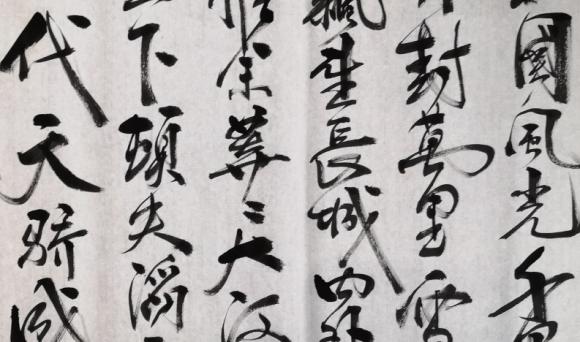 國風光千
封萬里雪
飄望長城内外
惟余莽〻大河
下頓失滔
代天驕成